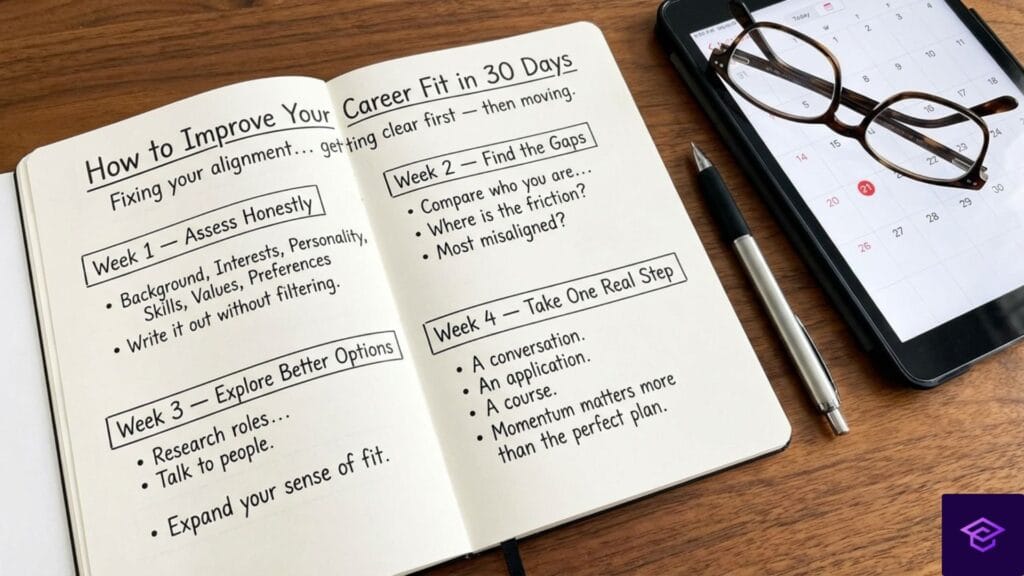 How to Improve Your Career Fit in 30 Days
Fixing your alignment... getting clear first — then moving.
Week 1 — Assess Honestly
• Background, Interests, Personality,
Skills, Values, Preferences
• Write it out without filtering.
Week 2 — Find the Gaps
• Compare who you are...
• Where is the friction?
• Most misaligned?
Week 3 — Explore Better Options
• Research roles...
• Talk to people.
• Expand your sense of fit.
Week 4 — Take One Real Step
• A conversation.
• An application.
• A course.
• Momentum matters more
than the perfect plan.
Today
14
20 21
26 27 28 29 30